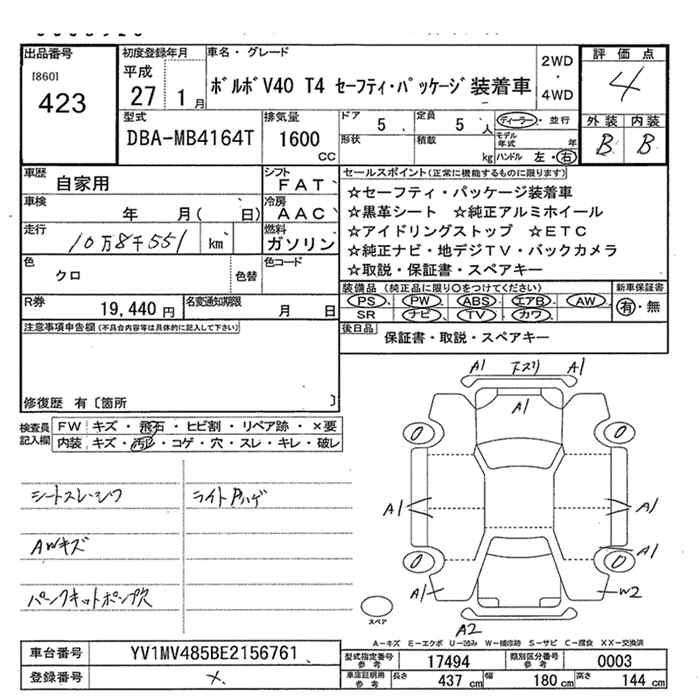 出品番号
[860]
423
初度登録年月
平成
27 1月
車名・グレード
ボルボV40 T4 セーフティ・パッケージ装着車
2WD
・
4WD
評価点
4
外装 内装
B B
型式
DBA-MB4164T
排気量
1600
CC
ドア
5
定員
5 人
形状
積載
kg
ディーラー・並行
モデル年式 年
ハンドル 左・右
車歴
自家用
シフト
FAT
車検
年 月( 日)
冷房
AAC
走行
10万8千551 km
燃料
ガソリン
色
クロ
色替
色コード
R券
19,440円
名変通知期限
月 日
セールスポイント(正常に機能するものに限ります)
☆セーフティ・パッケージ装着車
☆黒革シート ☆純正アルミホイール
☆アイドリングストップ ☆ETC
☆純正ナビ・地デジTV・バックカメラ
☆取説・保証書・スペアキー
装備品(純正品に限り○をつけてください)
PS PW ABS エアB AW
SR ナビ TV カワ
新車保証書
有・無
後日品
保証書・取説・スペアキー
注意事項申告欄(不具合内容等は具体的に記入して下さい)
修復歴 有〔箇所 〕
検査員記入欄
FW キズ・飛石・ヒビ割・リペア跡・×要
内装 キズ・汚れ・コゲ・穴・スレ・キレ・破レ
シートスレ・シワ
ライトハゲ
AWキズ
パンクキットポンプ欠
A1 下スリ A1
A1
A1 A1
A1
A1 W2
A2
スペア
A-キズ E-エクボ U-凹み W-補修跡 S-サビ C-腐食 XX-交換済
車台番号
YV1MV485BE2156761
登録番号
×
型式指定番号
参考
17494
類別区分番号
参考
0003
車庫証明用
参考
長さ 437 cm
幅 180 cm
高さ 144 cm